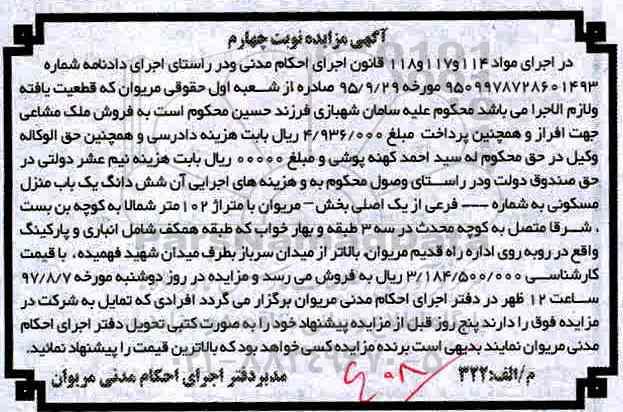 آگهی مزایده نوبت چهارم
در اجرای مواد ۱۱۴و۱۱۷و۱۱۸ قانون اجرای احکام مدنی ودر راستای اجرای دادنامه شماره
۹۵۰۹۹۷۸۷۲۸۶۰۱۴۹۳ مورخه ۹۵/۹/۲۹ صادره از شعبه اول حقوقی مریوان که قطعیت یافته
ولازم الاجرا می باشد محکوم علیه سامان شهبازی فرزند حسین محکوم است به فروش ملک مشاعی
جهت افراز و همچنین پرداخت مبلغ ۴/۹۳۶/۰۰۰ ریال بابت هزینه دادرسی و همچنین حق الوکاله
وکیل در حق محکوم له سید احمد کهنه پوشی و مبلغ ۰۰۰۰۰ ریال بابت هزینه نیم عشر دولتی در
حق صندوق دولت ودر راستای وصول محکوم به و هزینه های اجرایی آن شش دانگ یک باب منزل
مسکونی به شماره --- فرعی از یک اصلی بخش- مریوان با متراژ ۱۰۲ متر شمالا به کوچه بن بست
، شرقا متصل به کوچه محدث در سه ۳ طبقه و بهار خواب که طبقه همکف شامل انباری و پارکینگ
واقع در روبه روی اداره راه قدیم مریوان، بالاتر از میدان سرباز بطرف میدان شهید فهمیده، با قیمت
کارشناسی ۳/۱۸۴/۵۰۰/۰۰۰ ریال به فروش می رسد و مزایده در روز دوشنبه مورخه ۹۷/۸/۷
ساعت ۱۲ ظهر در دفتر اجرای احکام مدنی مریوان برگزار می گردد افرادی که تمایل به شرکت در
مزایده فوق را دارند پنج روز قبل از مزایده پیشنهاد خود را به صورت کتبی تحویل دفتر اجرای احکام
مدنی مریوان نمایند بدیهی است برنده مزایده کسی خواهد بود که بالاترین قیمت را پیشنهاد نمائید.
م/الف:۳۲۲ مدیردفتر اجرای احکام مدنی مریوان